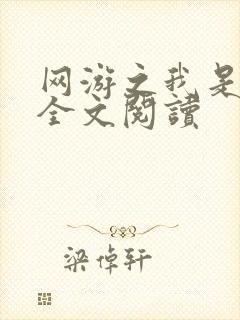 网游之我是
全文閱讀
梁倬轩